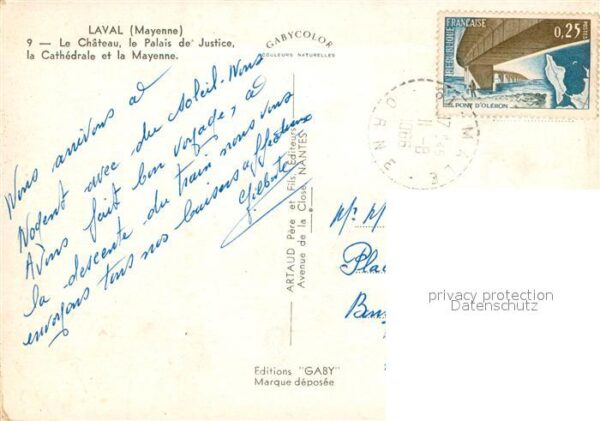 LAVAL (Mayenne)
9 — Le Château, le Palais de Justice,
la Cathédrale et la Mayenne.
GABYCOLOR
COULEURS NATURELLES
RÉPUBLIQUE FRANÇAISE
0,25
POSTES
PONT D'OLÉRON
17 H45
11-8
1966
ORNE
Nous arrivons à
Nodent avec du soleil. Nous
Avons fait bon voyage, à
la descente du train nous vous
envoyons tous nos baisers affectueux
Gilberte
ARTAUD Père et Fils Éditeurs
Avenue de la Close, NANTES
Mr M
Plac
Editions "GABY"
Marque déposée
privacy protection
Datenschutz